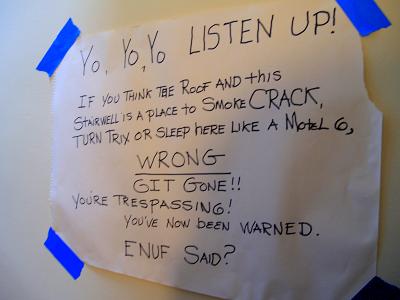 Yo, Yo, Yo LISTEN UP!
IF YOU THINK THE ROOF AND this
STAIRWELL IS A PLACE to SMOKE CRACK,
TURN TRIX OR SLEEP HERE LIKE A MOTEL 6,
WRONG
GIT GONE!!
YOU'RE TRESPASSING!
YOU'VE NOW BEEN WARNED.
ENUF SAID?